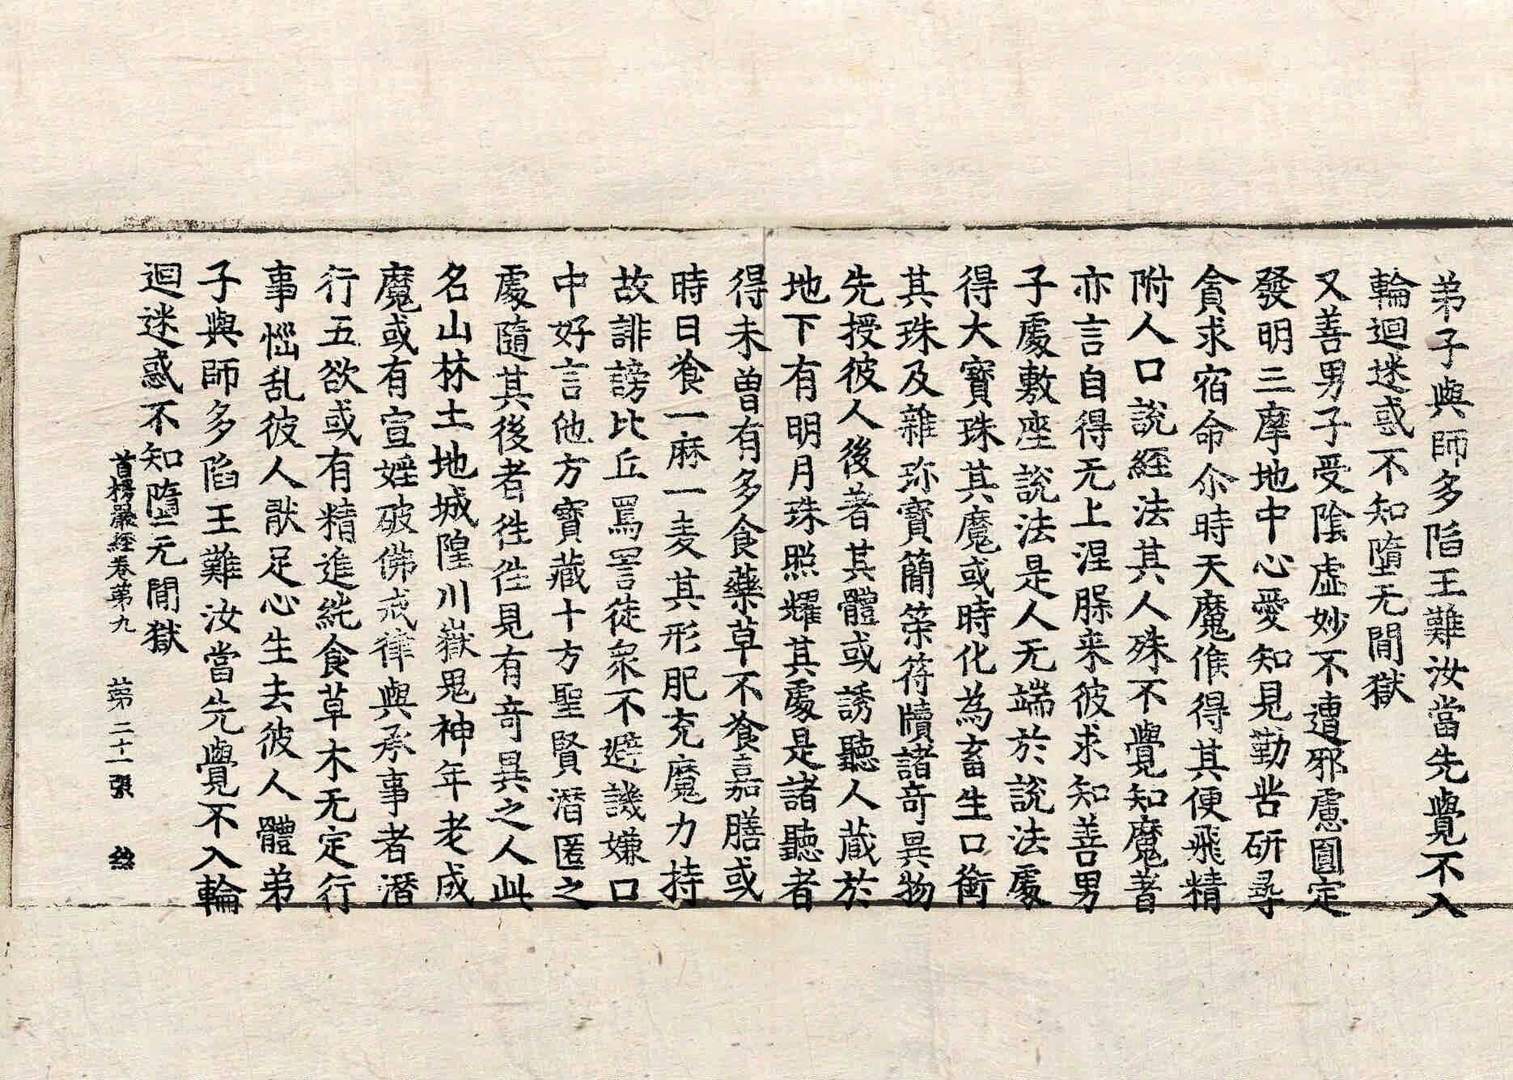 弟子與師多陷王難汝當先覺不入
輪迴迷惑不知墮无間獄
又善男子受陰虛妙不遭邪慮圓定
發明三摩地中心愛知見勤苦研尋
貪求宿命尒時天魔候得其便飛精
附人口說經法其人殊不覺知魔著
亦言自得无上涅槃来彼求知善男
子處敷座說法是人无端於說法處
得大寶珠其魔或時化為畜生口銜
其珠及雜珎寶簡筞符牘諸奇異物
先授彼人後著其體或誘聽人蔵於
地下有明月珠照耀其處是諸聽者
得未曾有多食藥草不飡嘉膳或
時日飡一麻一麦其形肥充魔力持
故誹謗比丘罵詈徒衆不避譏嫌口
中好言他方寶藏十方聖賢潛匿之
處隨其後者往往見有奇異之人此
名山林土地城隍川嶽鬼神年老成
魔或有宣婬破佛戒律與承事者潛
行五欲或有精進純食草木无定行
事惱乱彼人猒足心生去彼人體弟
子與師多陷王難汝當先覺不入輪
迴迷惑不知墮无間獄
首楞嚴經卷第九 第二十一張 絲